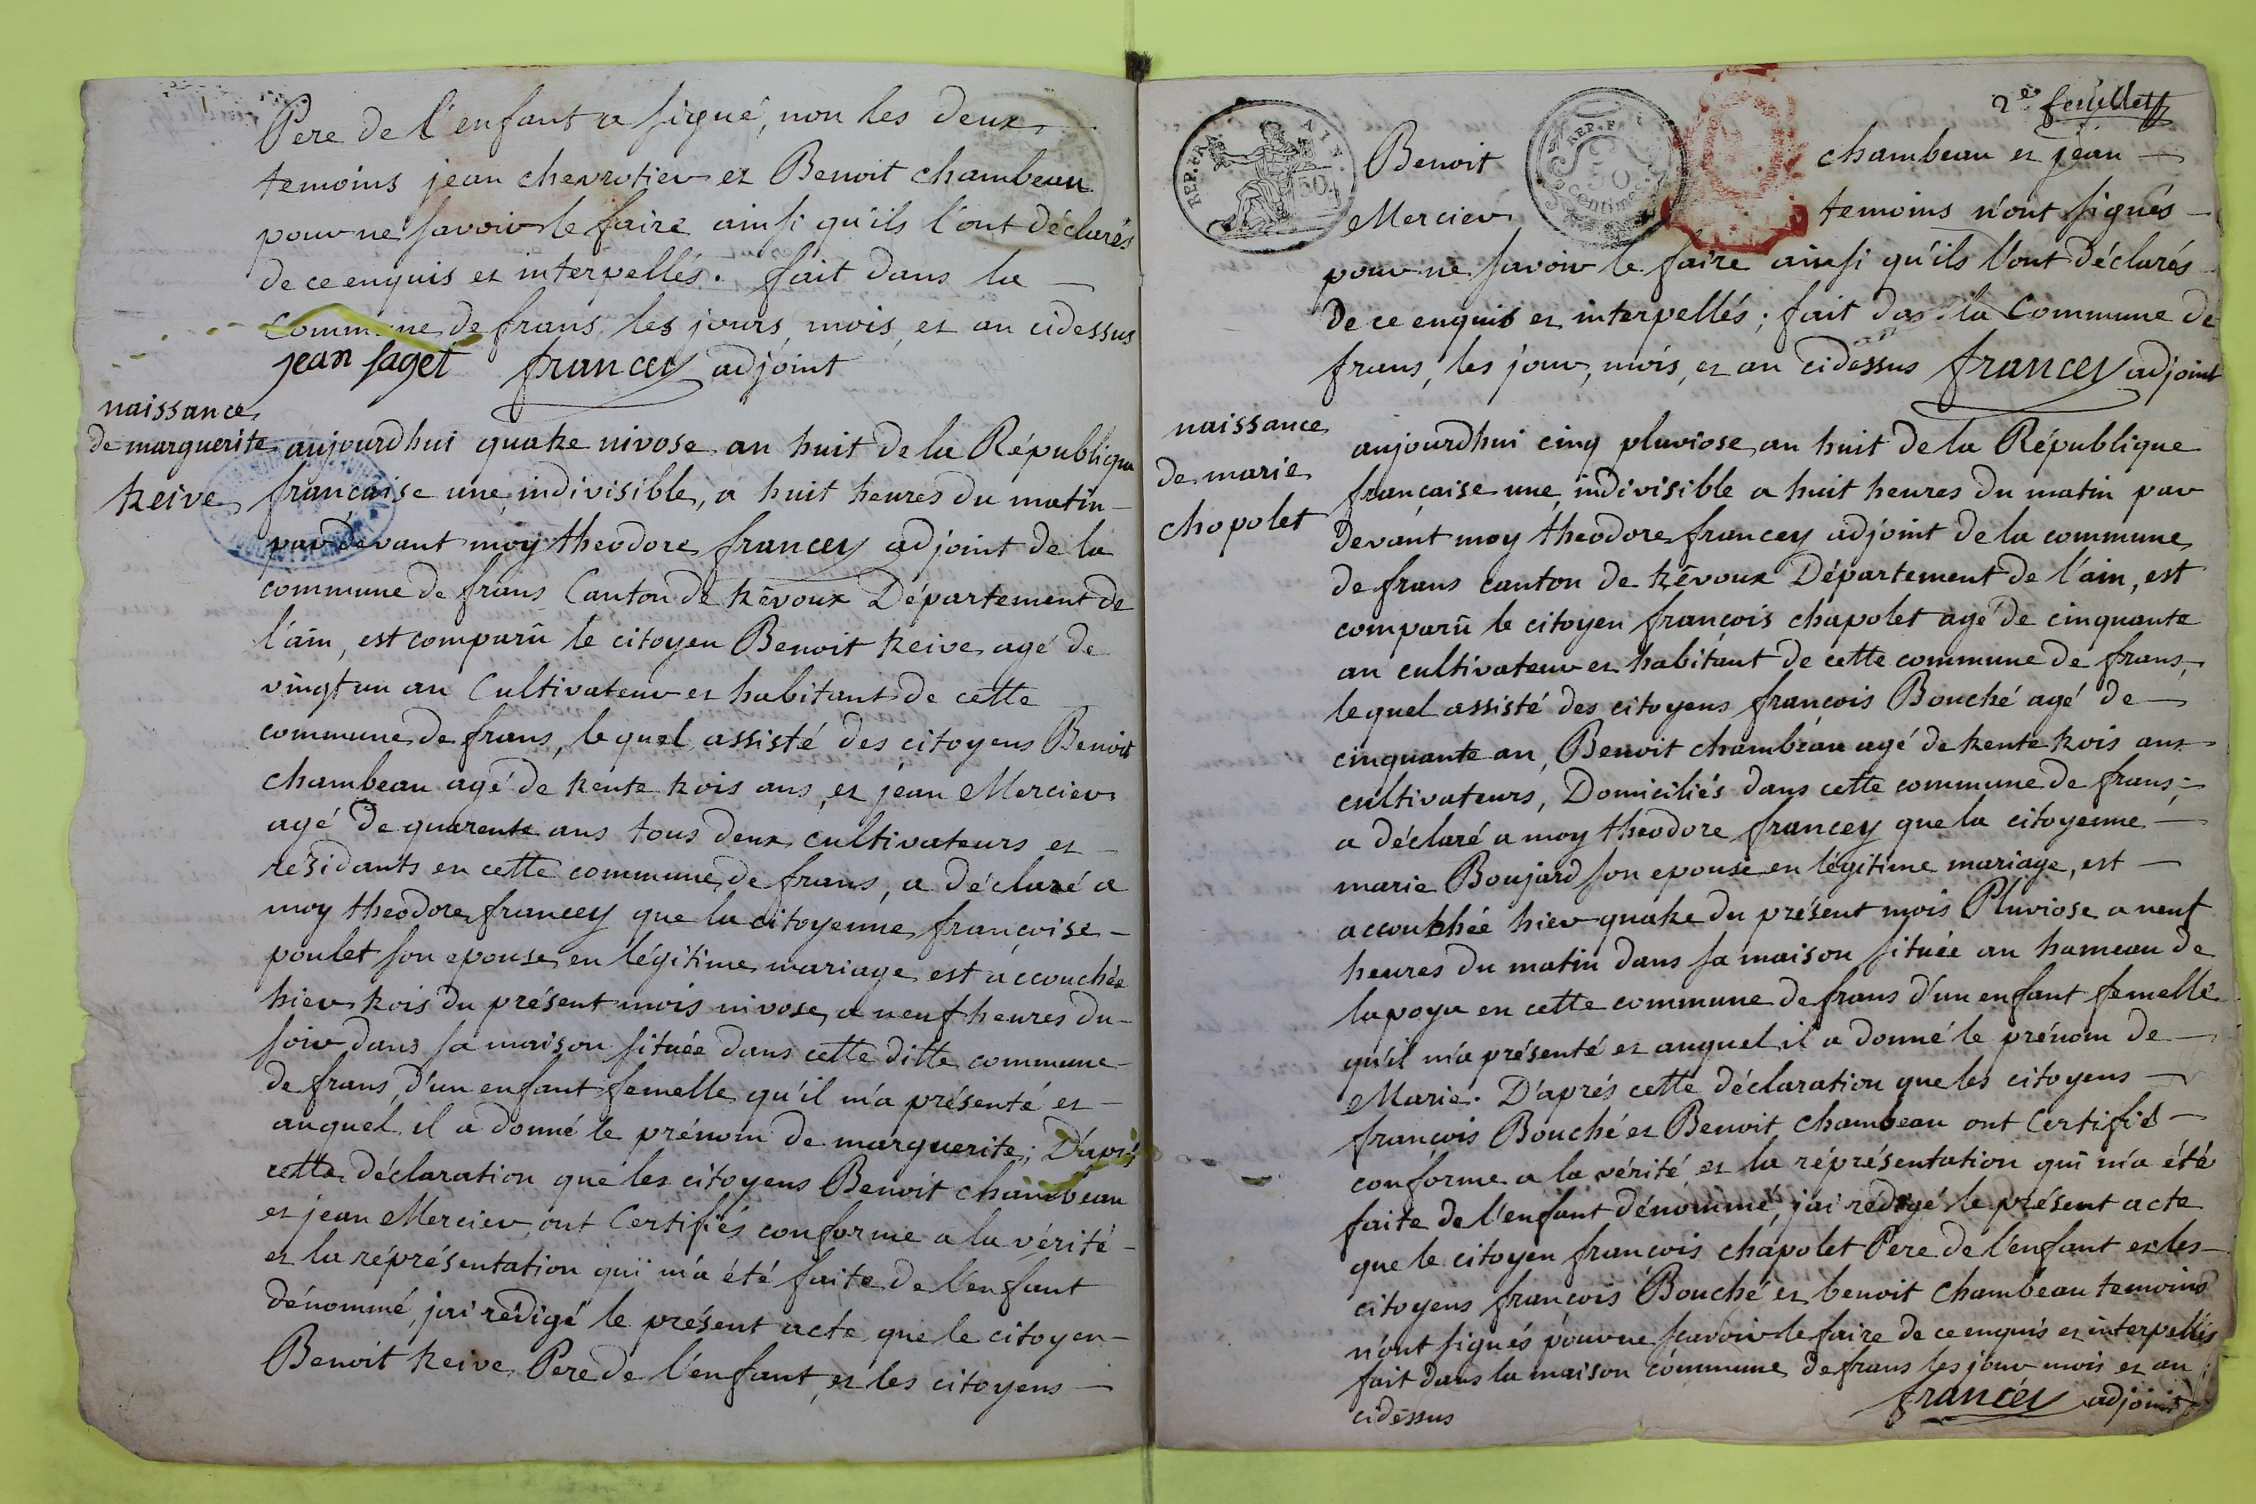 Pere de l'enfant a signé, non les deux
temoins jean chevrotier et Benoit chambeau
pour ne savoir le faire ainsi qu'ils l'ont déclarés
de ce enquis et interpellés. fait dans la
commune de frans, les jours, mois, et an cidessus
jean saget francey adjoint
naissance
de marguerite
treive
aujourdhui quatre nivose an huit de la République
française une, indivisible, a huit heures du matin
pardevant moy theodore francey adjoint de la
commune de frans Canton de trévoux Département de
l'ain, est comparû le citoyen Benoit treive agé de
vingt un an Cultivateur et habitant de cette
commune de frans, lequel assisté des citoyens Benoit
chambeau agé de trente trois ans, et jean Mercier
agé de quarente ans tous deux cultivateurs et
résidants en cette commune de frans, a déclaré a
moy theodore francey que la citoyenne françoise
poulet son epouse en légitime mariage est accouchée
hier trois du présent mois nivose, a neuf heures du
soir dans sa maison située dans cette ditte commune
de frans, d'un enfant femelle qu'il m'a présenté et
auquel il a donné le prénom de marguerite; D'aprés
cette déclaration que les citoyens Benoit chambeau
et jean Mercier ont Certifiés conforme a la vérité
et la réprésentation qui m'a été faite de l'enfant
dénommé, j'ai rédigé le présent acte que le citoyen
Benoit treive Pere de l'enfant, et les citoyens
2e feuillet
REP. FRA. AIN. 50
REP. F 50 centimes
Benoit chambeau et jean
Mercier temoins n'ont signés
pour ne savoir le faire ainsi qu'ils l'ont déclarés
de ce enquis et interpellés; fait das la Commune de
frans, les jour, mois, et an cidessus francey adjoint
naissance
de marie
chopolet
aujourdhui cinq pluviose, an huit de la République
française une, indivisible a huit heures du matin par
devant moy theodore francey adjoint de la commune
de frans canton de trévoux Département de l'ain, est
comparû le citoyen françois chapolet agé de cinquante
an cultivateur et habitant de cette commune de frans,
lequel assisté des citoyens françois Bouché agé de
cinquante an, Benoit chambeau agé de trente trois ans
cultivateurs, Domiciliés dans cette commune de frans;
a déclaré a moy theodore francey que la citoyenne
marie Boujard son epouse en légitime mariage, est
accouchée hier quatre du présent mois Pluviose a neuf
heures du matin dans sa maison située au hameau de
lapoya en cette commune de frans d'un enfant femelle
qu'il m'a présenté et auquel il a donné le prénom de
Marie. D'aprés cette déclaration que les citoyens
françois Bouché et Benoit chambeau ont Certifiés
conforme a la vérité et la réprésentation qui m'a été
faite de l'enfant dénommé, j'ai rédigé le présent acte
que le citoyen françois chapolet Pere de l'enfant et les
citoyens françois Bouché et benoit chambeau temoins
n'ont signés pour ne savoir le faire de ce enquis et interpellés
fait dans la maison commune de frans les jour mois et an
cidessus francey adjoint